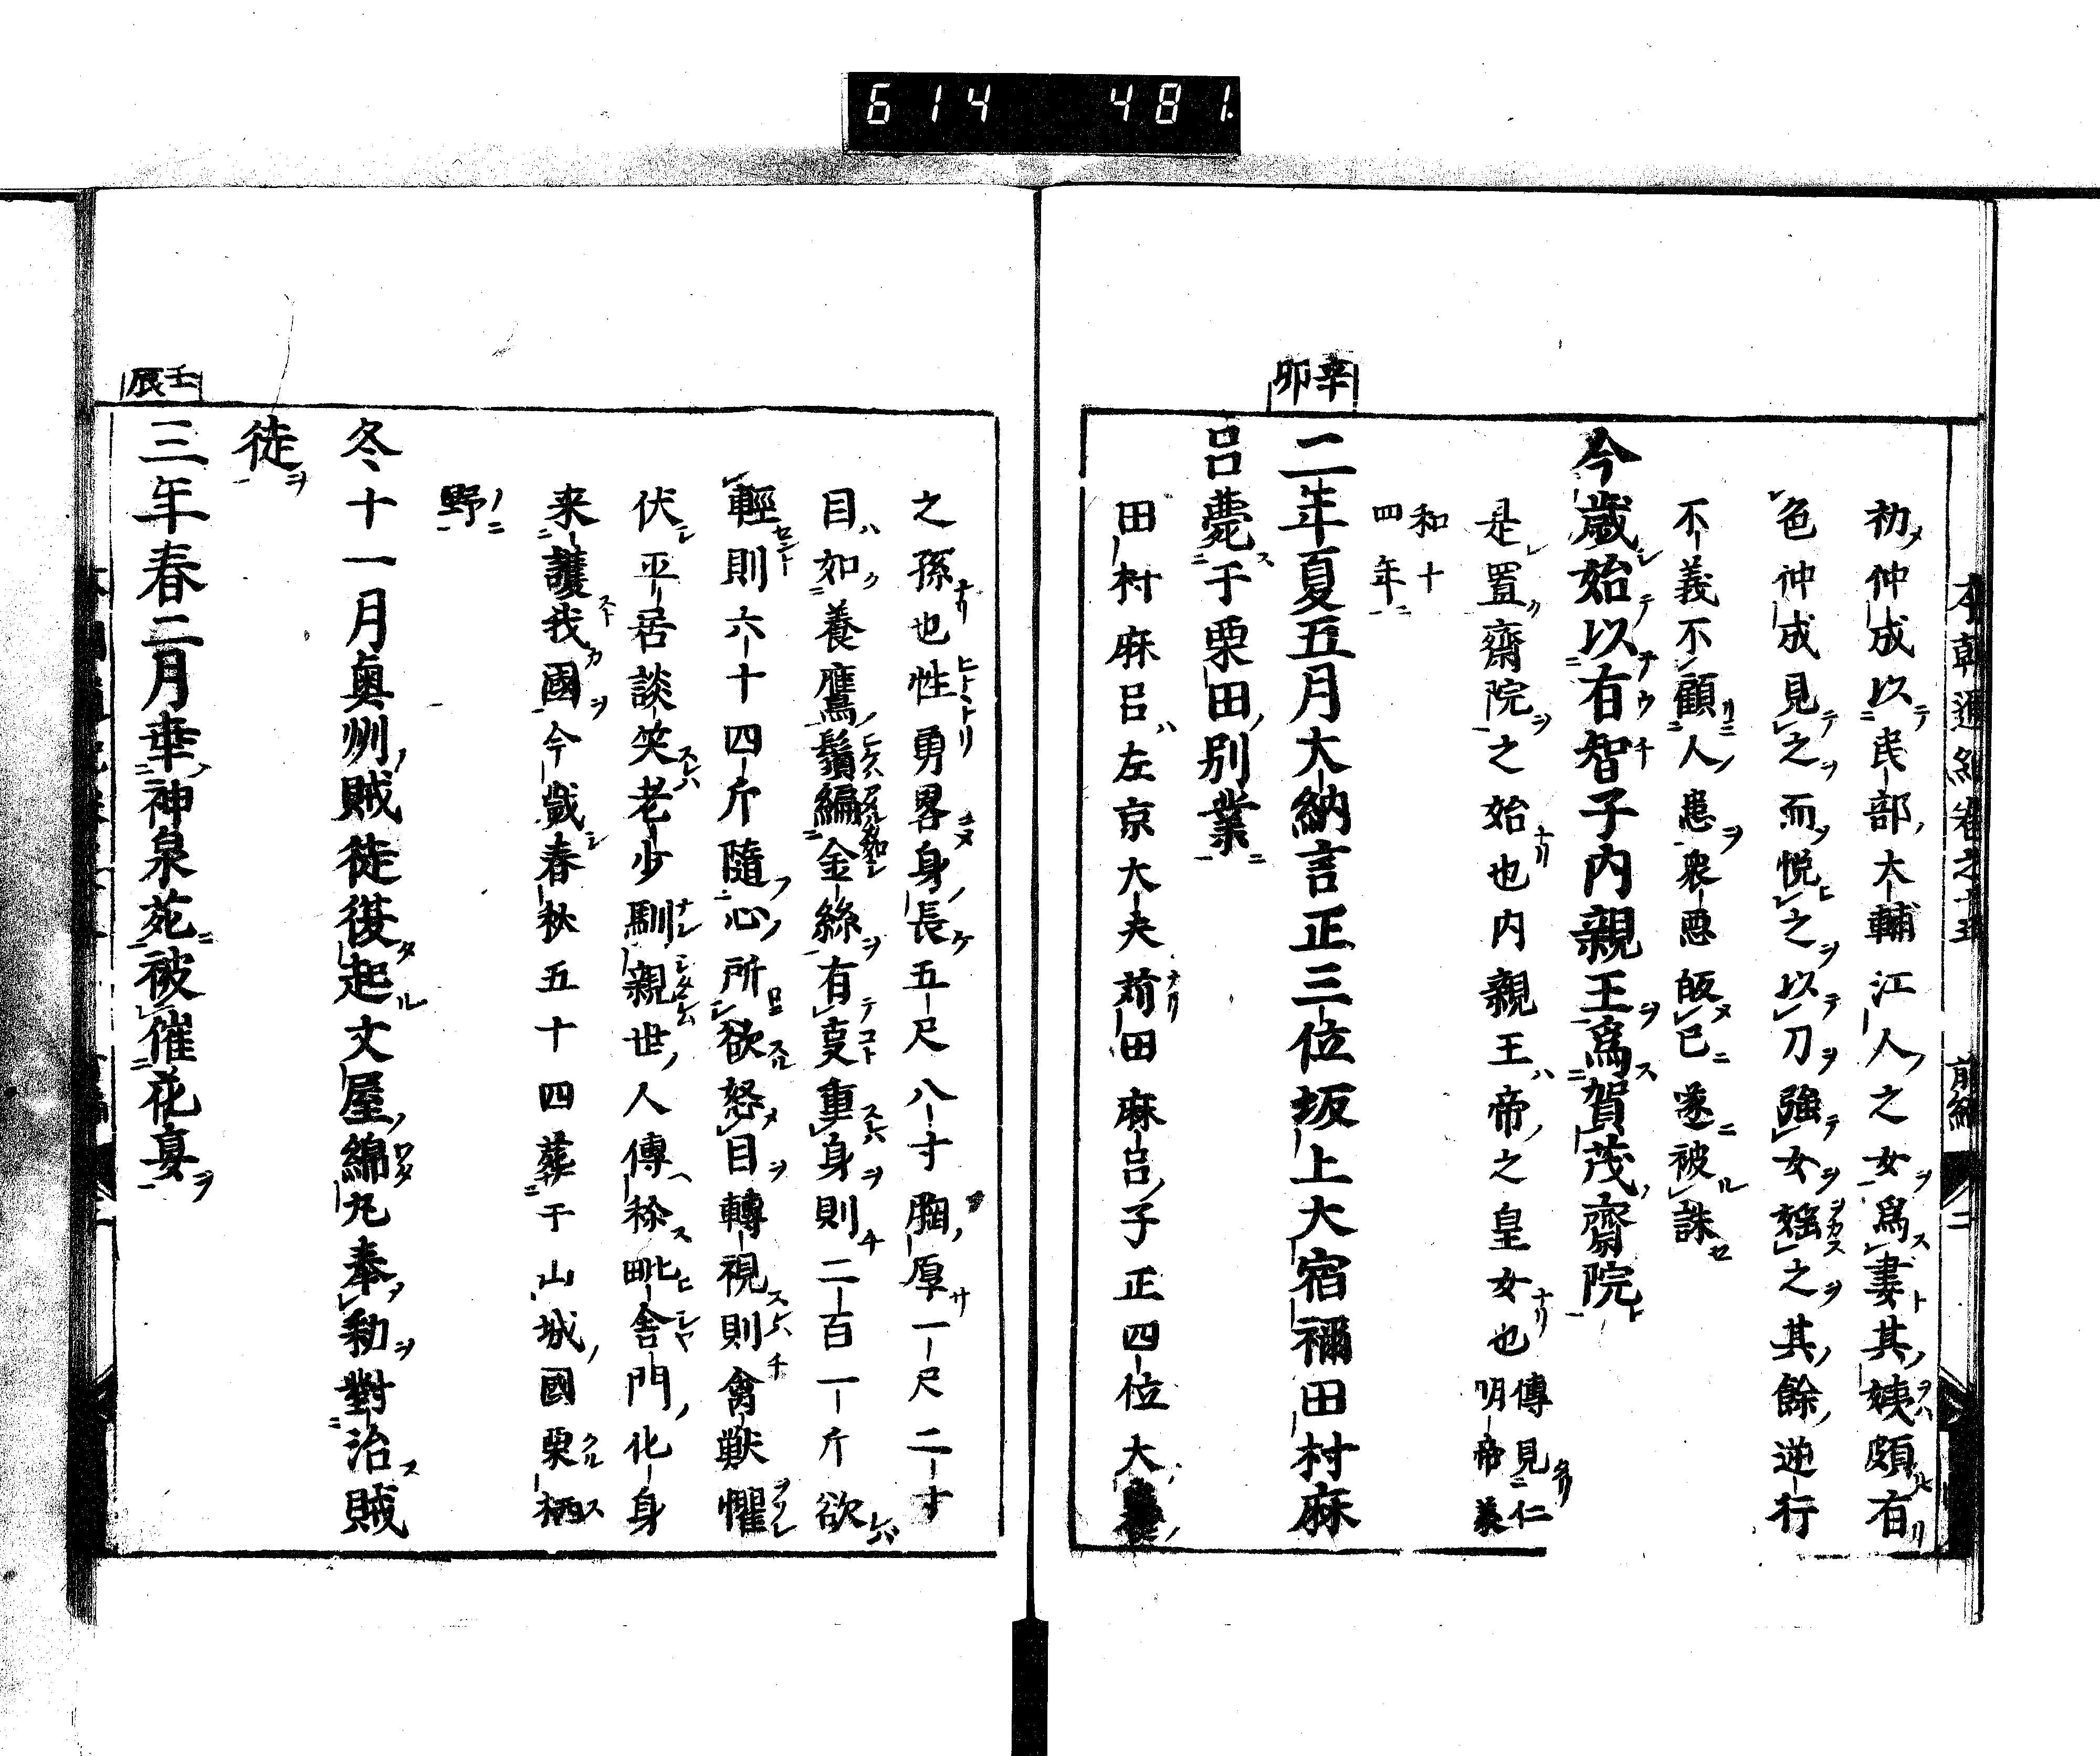 614 481
初仲成以民部大輔江人之女爲妻其姨頗有
色仲成見之而悦之以刀強女婬之其餘逆行
不義不顧人患衆惡皈已遂被誅
今歳始以有智子内親王爲賀茂齋院
是置齋院之始也内親王帝之皇女也傳見仁
明帝義
和十
四年
辛卯
二年夏五月大納言正三位坂上大宿禰田村麻
呂薨于栗田別業
田村麻呂左京大夫苅田麻呂子正四位大養
之孫也性勇畧身長五尺八寸胸厚一尺二寸
目如養鷹鬚編金絲有叓重身則二百一斤欲
輕則六十四斤隨心所欲怒目轉視則禽獣懼
伏平居談笑老少馴親世人傳稱毗舎門化身
来護我國今歳春秋五十四葬于山城國栗栖
野
冬十一月奥州賊徒復起文屋綿丸奉勅對治賊
徒
壬辰
三年春二月幸神泉苑被催花宴